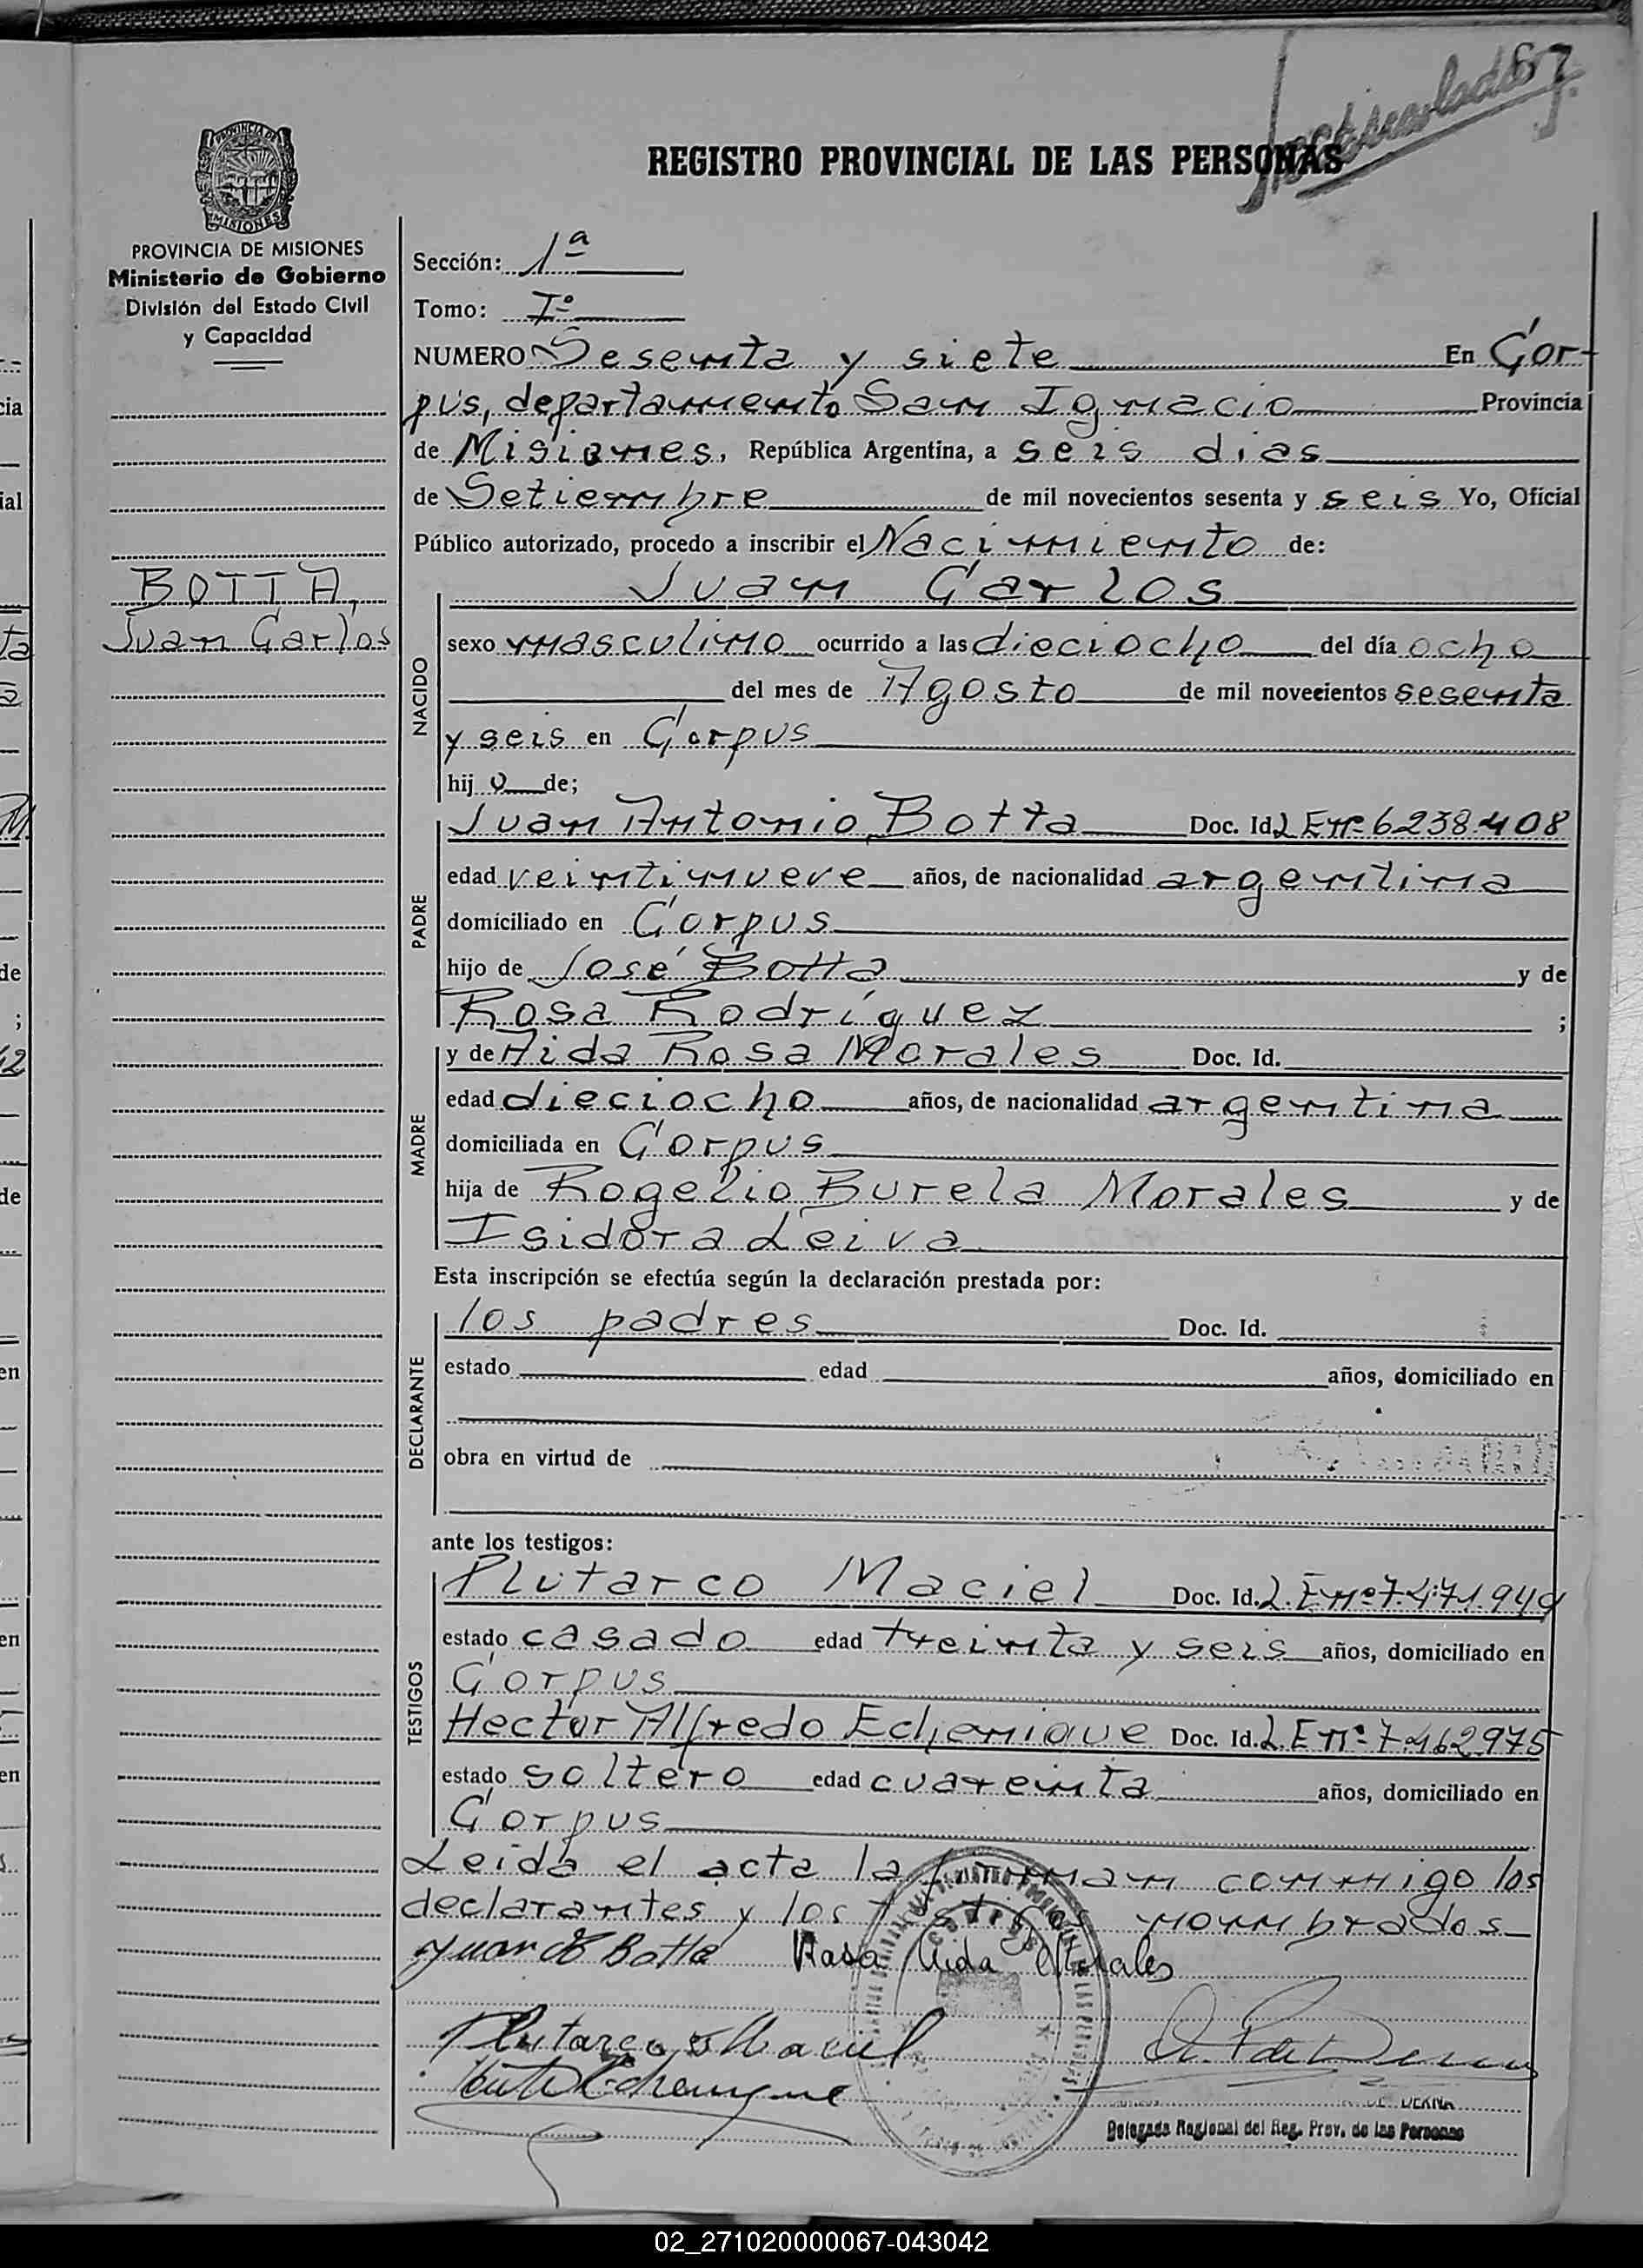 67
Inmatriculado
REGISTRO PROVINCIAL DE LAS PERSONAS
PROVINCIA DE MISIONES
PROVINCIA DE MISIONES
Ministerio de Gobierno
División del Estado Civil
y Capacidad
BOTTA,
Juan Carlos
Sección: 1ª
Tomo: Iº
NUMERO Sesenta y siete En Cor-
pus, departamento San Ignacio Provincia
de Misiones, República Argentina, a seis dias
de Setiembre de mil novecientos sesenta y seis Yo, Oficial
Público autorizado, procedo a inscribir el Nacimiento de:
NACIDO
Juan Carlos
sexo masculino ocurrido a las dieciocho del día ocho
del mes de Agosto de mil novecientos sesenta
y seis en Corpus
hij o de;
PADRE
Juan Antonio Botta Doc. Id. L Enº 6238408
edad veintinueve años, de nacionalidad argentina
domiciliado en Corpus
hijo de José Botta y de
Rosa Rodríguez ;
MADRE
y de Aida Rosa Morales Doc. Id.
edad dieciocho años, de nacionalidad argentina
domiciliada en Corpus
hija de Rogelio Burela Morales y de
Isidora Leiva
Esta inscripción se efectúa según la declaración prestada por:
DECLARANTE
los padres Doc. Id.
estado edad años, domiciliado en
obra en virtud de
ante los testigos:
TESTIGOS
Plutarco Maciel Doc. Id. L.Enº 7.471.949
estado casado edad treinta y seis años, domiciliado en
Corpus
Hector Alfredo Echenique Doc. Id. L.E nº 7462975
estado soltero edad cuarenta años, domiciliado en
Corpus
Leida el acta la firman conmigo los
declarantes y los testigos nombrados
Juan A Botta Rosa Aida Morales
Plutarco Maciel
Echenique
DE DERNA
Delegada Regional del Reg. Prov. de las Personas
02_271020000067-043042